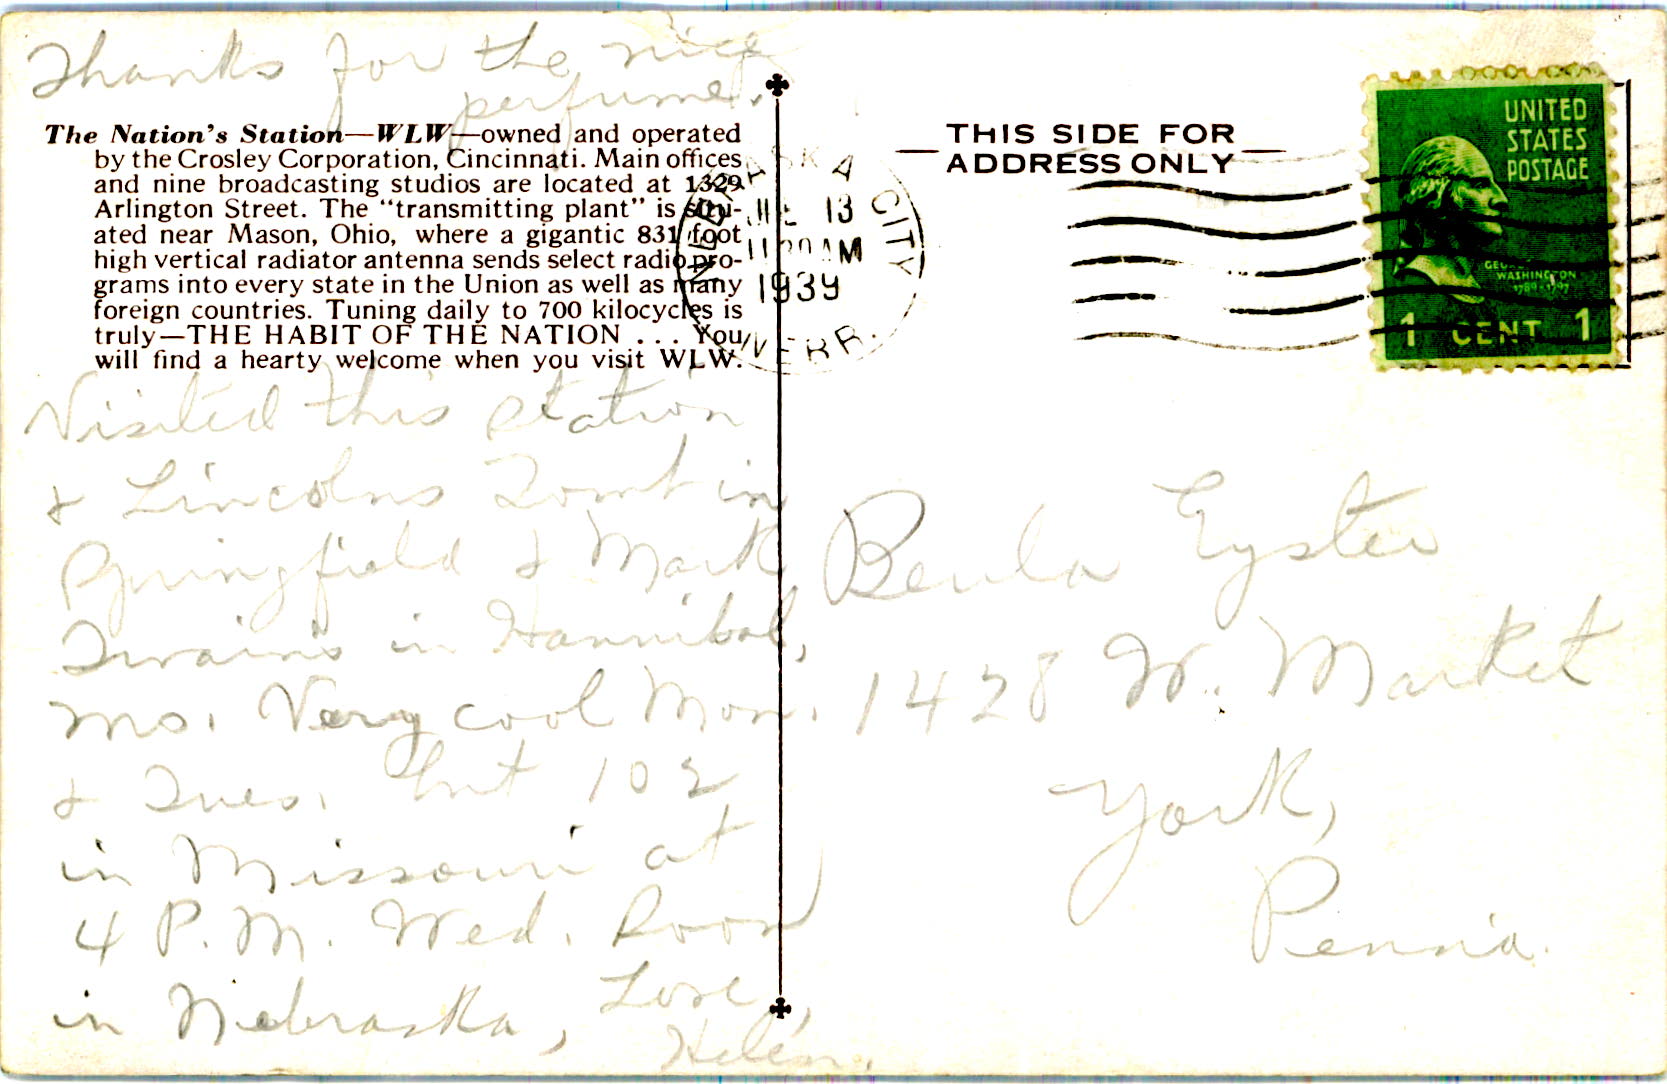 Thanks for the nice
perfume.
The Nation's Station—WLW—owned and operated
by the Crosley Corporation, Cincinnati. Main offices
and nine broadcasting studios are located at 1329
Arlington Street. The "transmitting plant" is situ-
ated near Mason, Ohio, where a gigantic 831 foot
high vertical radiator antenna sends select radio pro-
grams into every state in the Union as well as many
foreign countries. Tuning daily to 700 kilocycles is
truly—THE HABIT OF THE NATION . . . You
will find a hearty welcome when you visit WLW.
Visited this station
& Lincolns Tomb in
Springfield & Mark
Twains in Hannibal,
Mo. Very cool Mon.
& Tues. but 102
in Missouri at
4 P.M. Wed. Soon
in Nebraska,
Love,
Helen.
NEBRASKA CITY
13
11 AM
1939
NEBR.
THIS SIDE FOR
ADDRESS ONLY
UNITED
STATES
POSTAGE
GEORGE
WASHINGTON
1789-1797
1 CENT 1
Beula Eyster
1428 W. Market
York,
Penna.